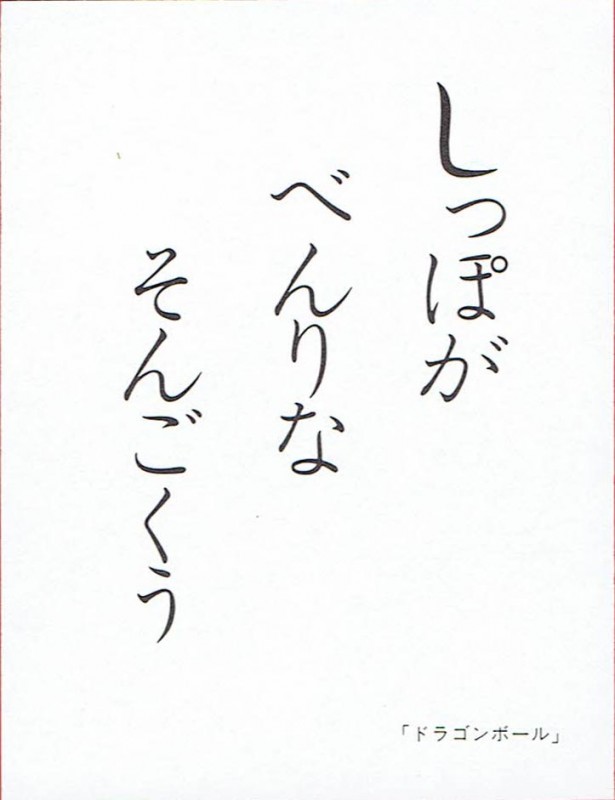 しっぽが
べんりな
そんごくう
「ドラゴンボール」